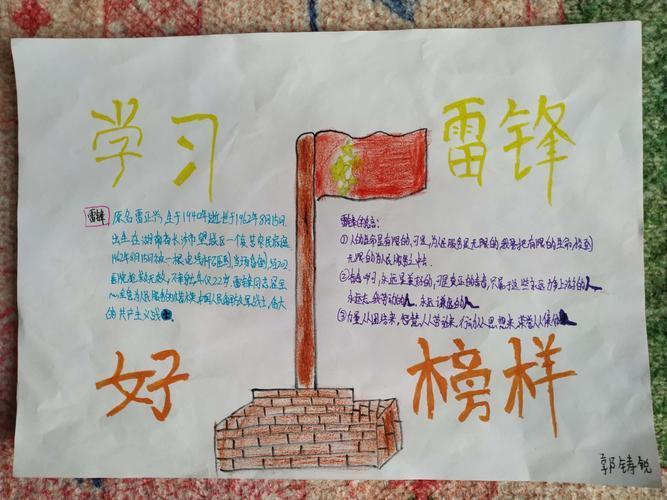 学习
雷锋
雷锋
原名雷正兴,生于1940年逝世于1962年8月15日
出生在湖南省长沙市望城区一个贫苦农民家庭
1962年8月15日被一根
当场
抢救无效,不幸
年仅22岁,雷锋同志是
全心全意为人民服务的
中国人民解放军战士,伟大
的共产主义战士
雷锋的名言:
①人的生命是有限的,可是,为人民服务是无限的,我要把有限的生命,投到
无限的为人民服务之中去。
②青春啊,永远是美好的,可是真正的青春,只属于这些永远力争上游的人
永远忘我劳动的人,永远谦虚的人
③力量从团结来,智慧从劳动来,行动从思想来,荣誉从集体
好
榜样
郭铸锐